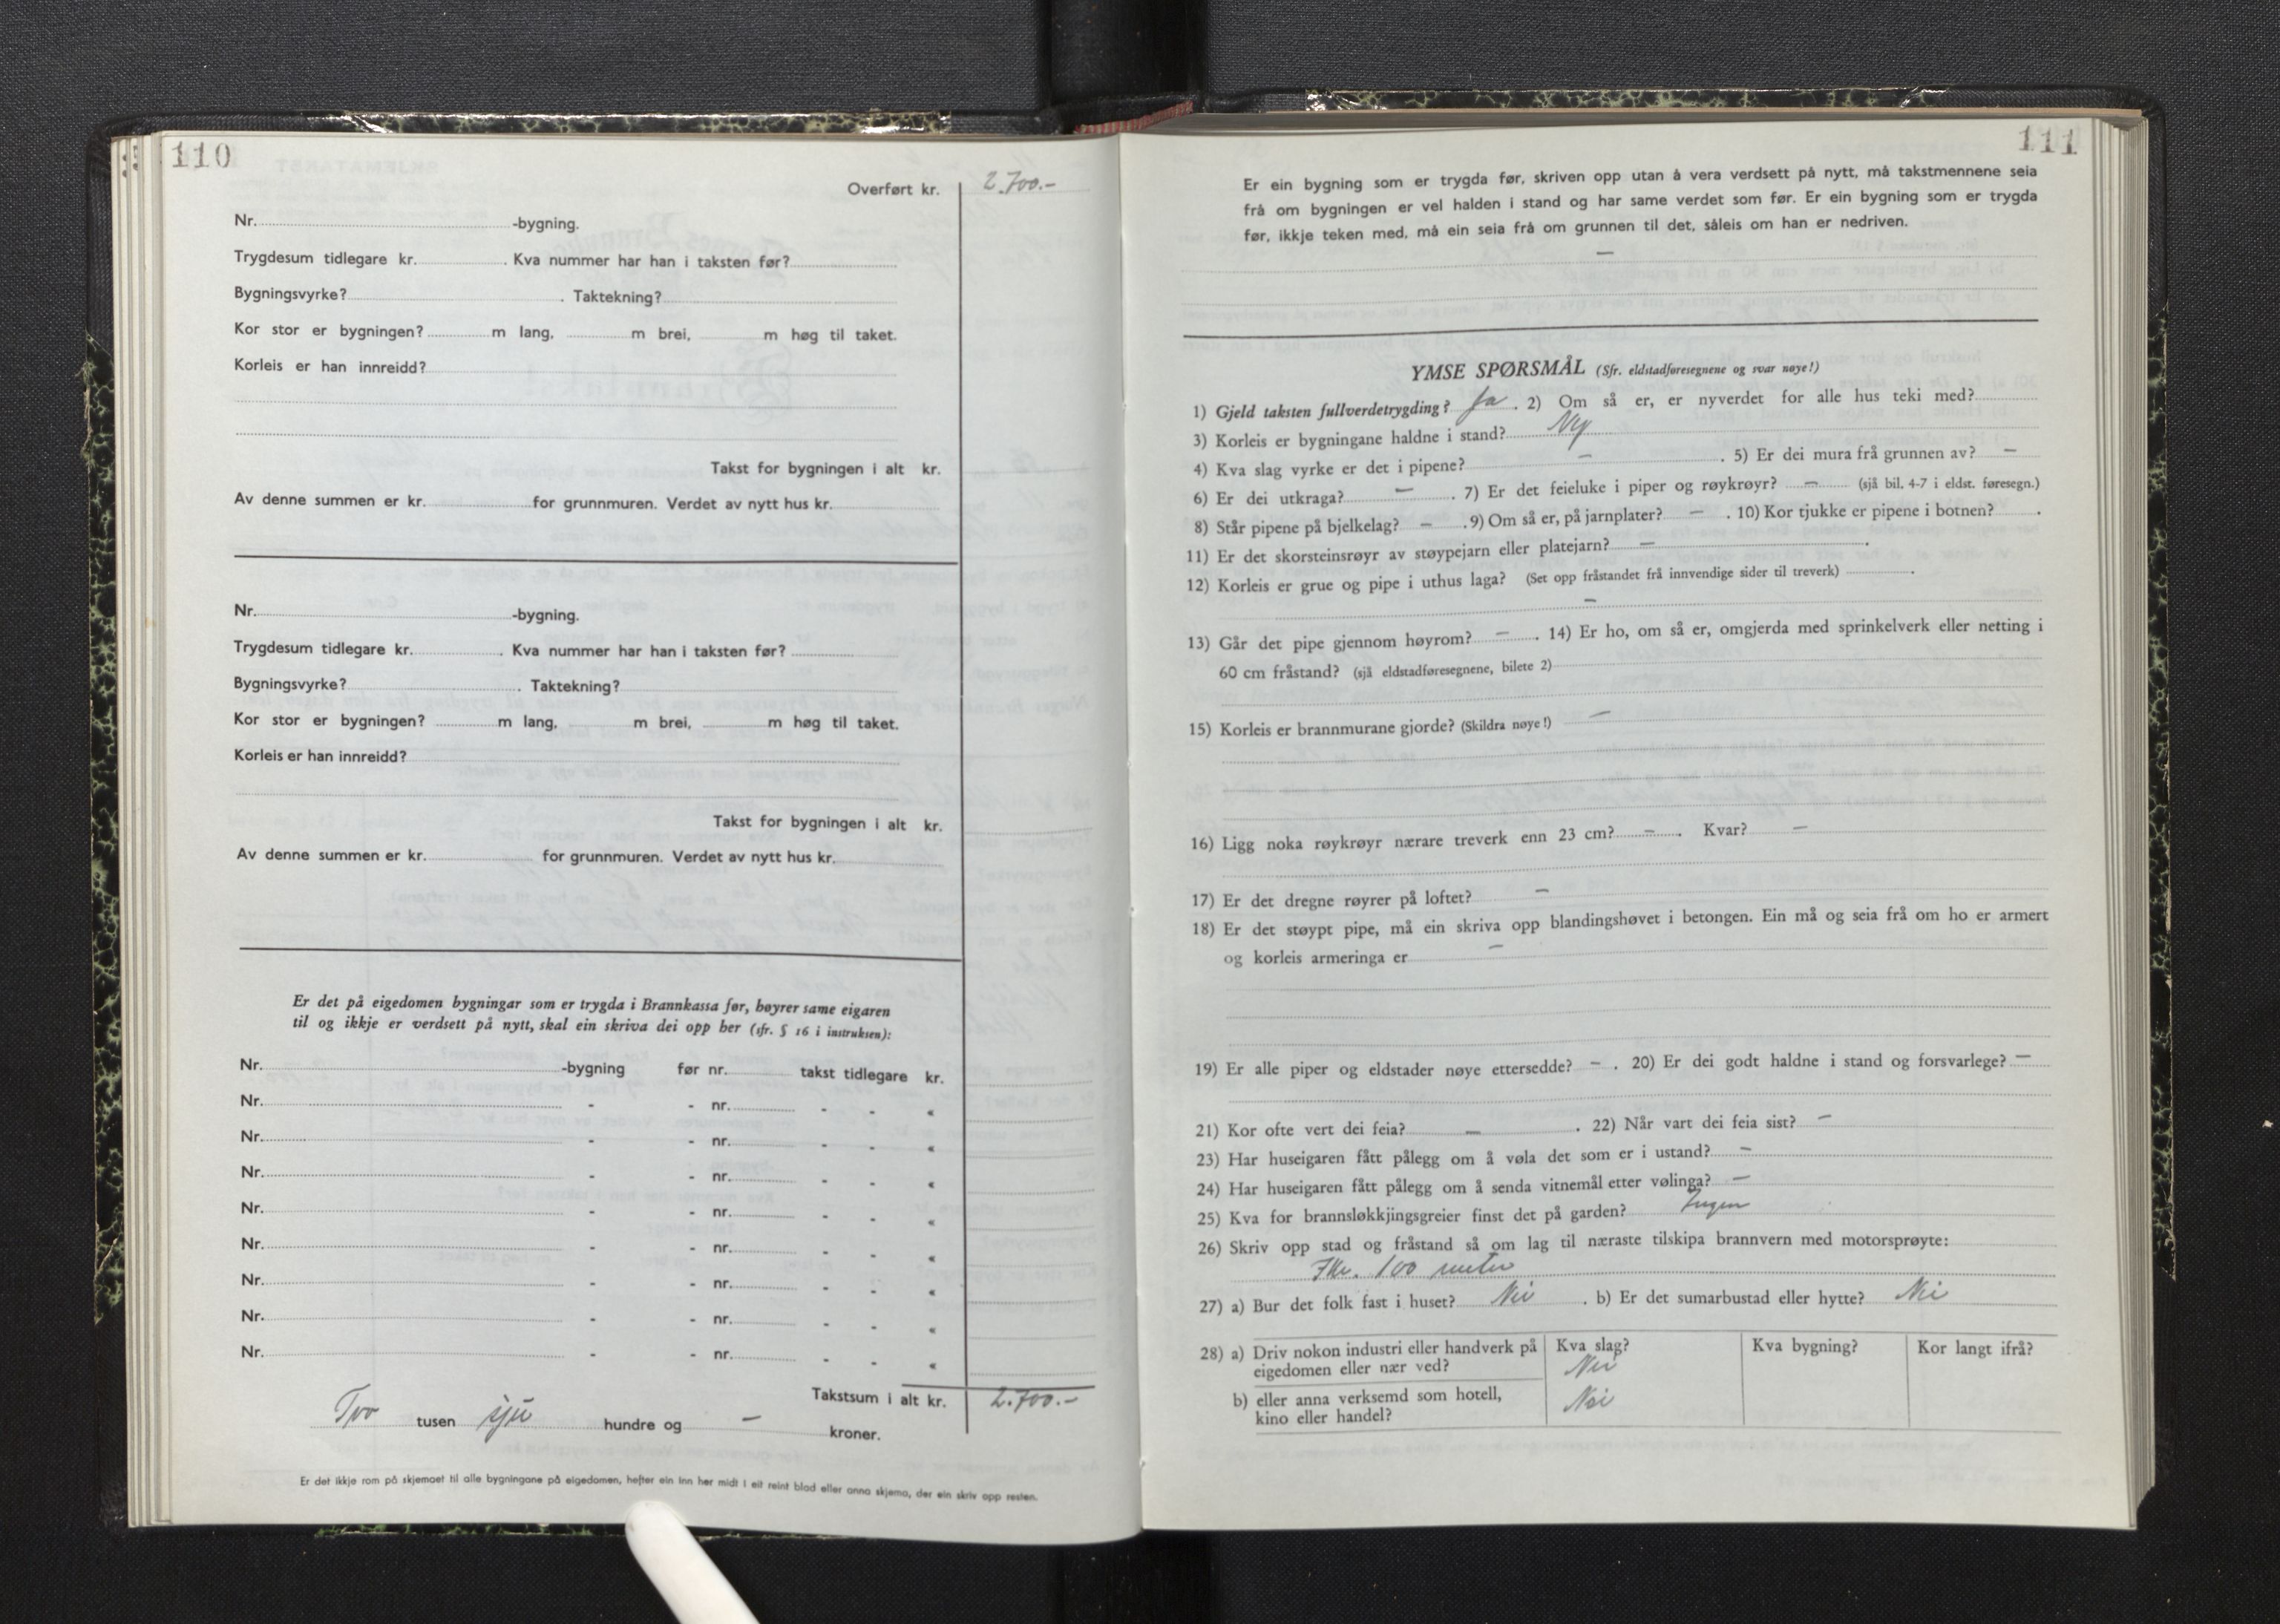 110
Overført kr. 2.700.-
Nr. -bygning.
Trygdesum tidlegare kr. . Kva nummer har han i taksten før?
Bygningsvyrke? . Taktekning?
Kor stor er bygningen? m lang, m brei, m høg til taket.
Korleis er han innreidd?
Takst for bygningen i alt kr.
Av denne summen er kr. for grunnmuren. Verdet av nytt hus kr.
Nr. -bygning.
Trygdesum tidlegare kr. . Kva nummer har han i taksten før?
Bygningsvyrke? . Taktekning?
Kor stor er bygningen? m lang, m brei, m høg til taket.
Korleis er han innreidd?
Takst for bygningen i alt kr.
Av denne summen er kr. for grunnmuren. Verdet av nytt hus kr.
Er det på eigedomen bygningar som er trygda i Brannkassa før, høyrer same eigaren
til og ikkje er verdsett på nytt, skal ein skriva dei opp her (sfr. § 16 i instruksen):
Nr. -bygning før nr. takst tidlegare kr.
Nr. - - nr. - - «
Nr. - - nr. - - «
Nr. - - nr. - - «
Nr. - - nr. - - «
Nr. - - nr. - - «
Nr. - - nr. - - «
Nr. - - nr. - - «
Nr. - - nr. - - «
Takstsum i alt kr. 2.700.-
Tvo tusen sju hundre og - kroner.
Er det ikkje rom på skjemaet til alle bygningane på eigedomen, hefter ein inn her midt i eit reint blad eller anna skjema, der ein skriv opp resten.
111
Er ein bygning som er trygda før, skriven opp utan å vera verdsett på nytt, må takstmennene seia
frå om bygningen er vel halden i stand og har same verdet som før. Er ein bygning som er trygda
før, ikkje teken med, må ein seia frå om grunnen til det, såleis om han er nedriven.
-
YMSE SPØRSMÅL (Sfr. eldstadføresegnene og svar nøye!)
1) Gjeld taksten fullverdetrygding? Ja . 2) Om så er, er nyverdet for alle hus teki med?
3) Korleis er bygningane haldne i stand? Ny
4) Kva slag vyrke er det i pipene? - . 5) Er dei mura frå grunnen av? -
6) Er dei utkraga? - . 7) Er det feieluke i piper og røykrøyr? - (sjå bil. 4-7 i eldst. føresegn.)
8) Står pipene på bjelkelag? - . 9) Om så er, på jarnplater? - . 10) Kor tjukke er pipene i botnen? .
11) Er det skorsteinsrøyr av støypejarn eller platejarn? - .
12) Korleis er grue og pipe i uthus laga? (Set opp fråstandet frå innvendige sider til treverk) .
-
13) Går det pipe gjennom høyrom? - . 14) Er ho, om så er, omgjerda med sprinkelverk eller netting i
60 cm fråstand? (sjå eldstadføresegnene, bilete 2)
15) Korleis er brannmurane gjorde? (Skildra nøye!) -
16) Ligg noka røykrøyr nærare treverk enn 23 cm? - . Kvar? -
17) Er det dregne røyrer på loftet? -
18) Er det støypt pipe, må ein skriva opp blandingshøvet i betongen. Ein må og seia frå om ho er armert
og korleis armeringa er -
19) Er alle piper og eldstader nøye ettersedde? - . 20) Er dei godt haldne i stand og forsvarlege? -
21) Kor ofte vert dei feia? - . 22) Når vart dei feia sist? -
23) Har huseigaren fått pålegg om å vøla det som er i ustand? -
24) Har huseigaren fått pålegg om å senda vitnemål etter vølinga? -
25) Kva for brannsløkkjingsgreier finst det på garden? Ingen
26) Skriv opp stad og fråstand så om lag til næraste tilskipa brannvern med motorsprøyte:
100 meter
27) a) Bur det folk fast i huset? Nei . b) Er det sumarbustad eller hytte? Nei
28) a) Driv nokon industri eller handverk på eigedomen eller nær ved? Kva slag? Nei Kva bygning? Kor langt ifrå?
b) eller anna verksemd som hotell, kino eller handel? Nei